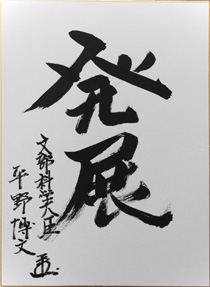 発展
文部科学大臣
平野博文